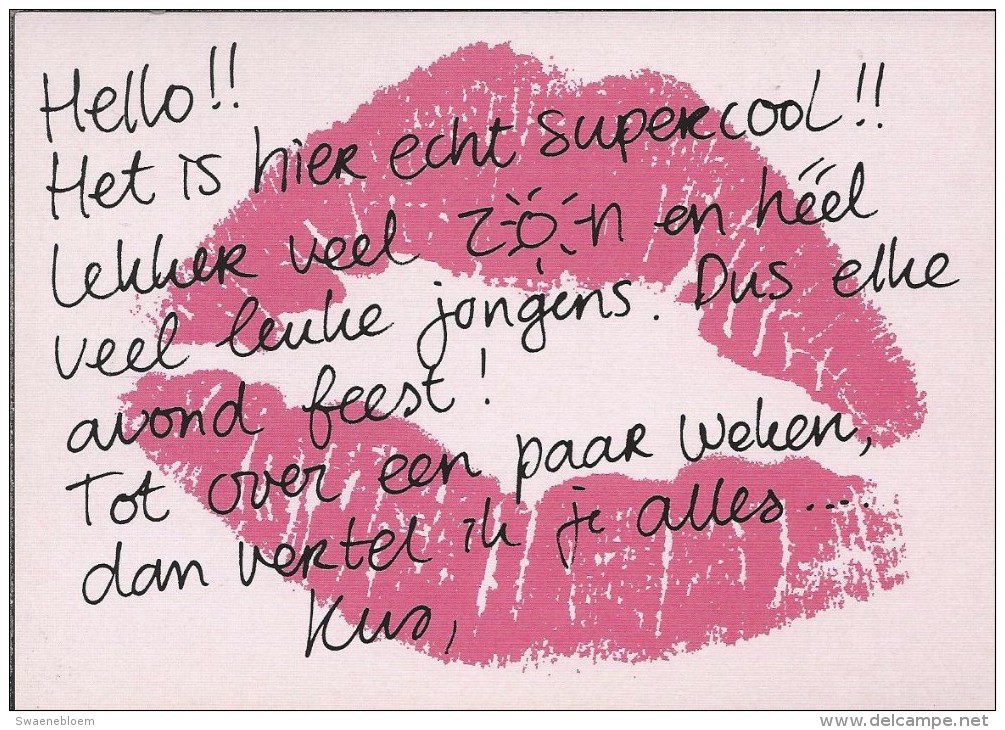 Hello!!
Het is hier echt supercool!!
Lekker veel zon en héél
veel leuke jongens. Dus elke
avond feest!
Tot over een paar weken,
dan vertel ik je alles....
Kus,
Swaenebloem
www.delcampe.net